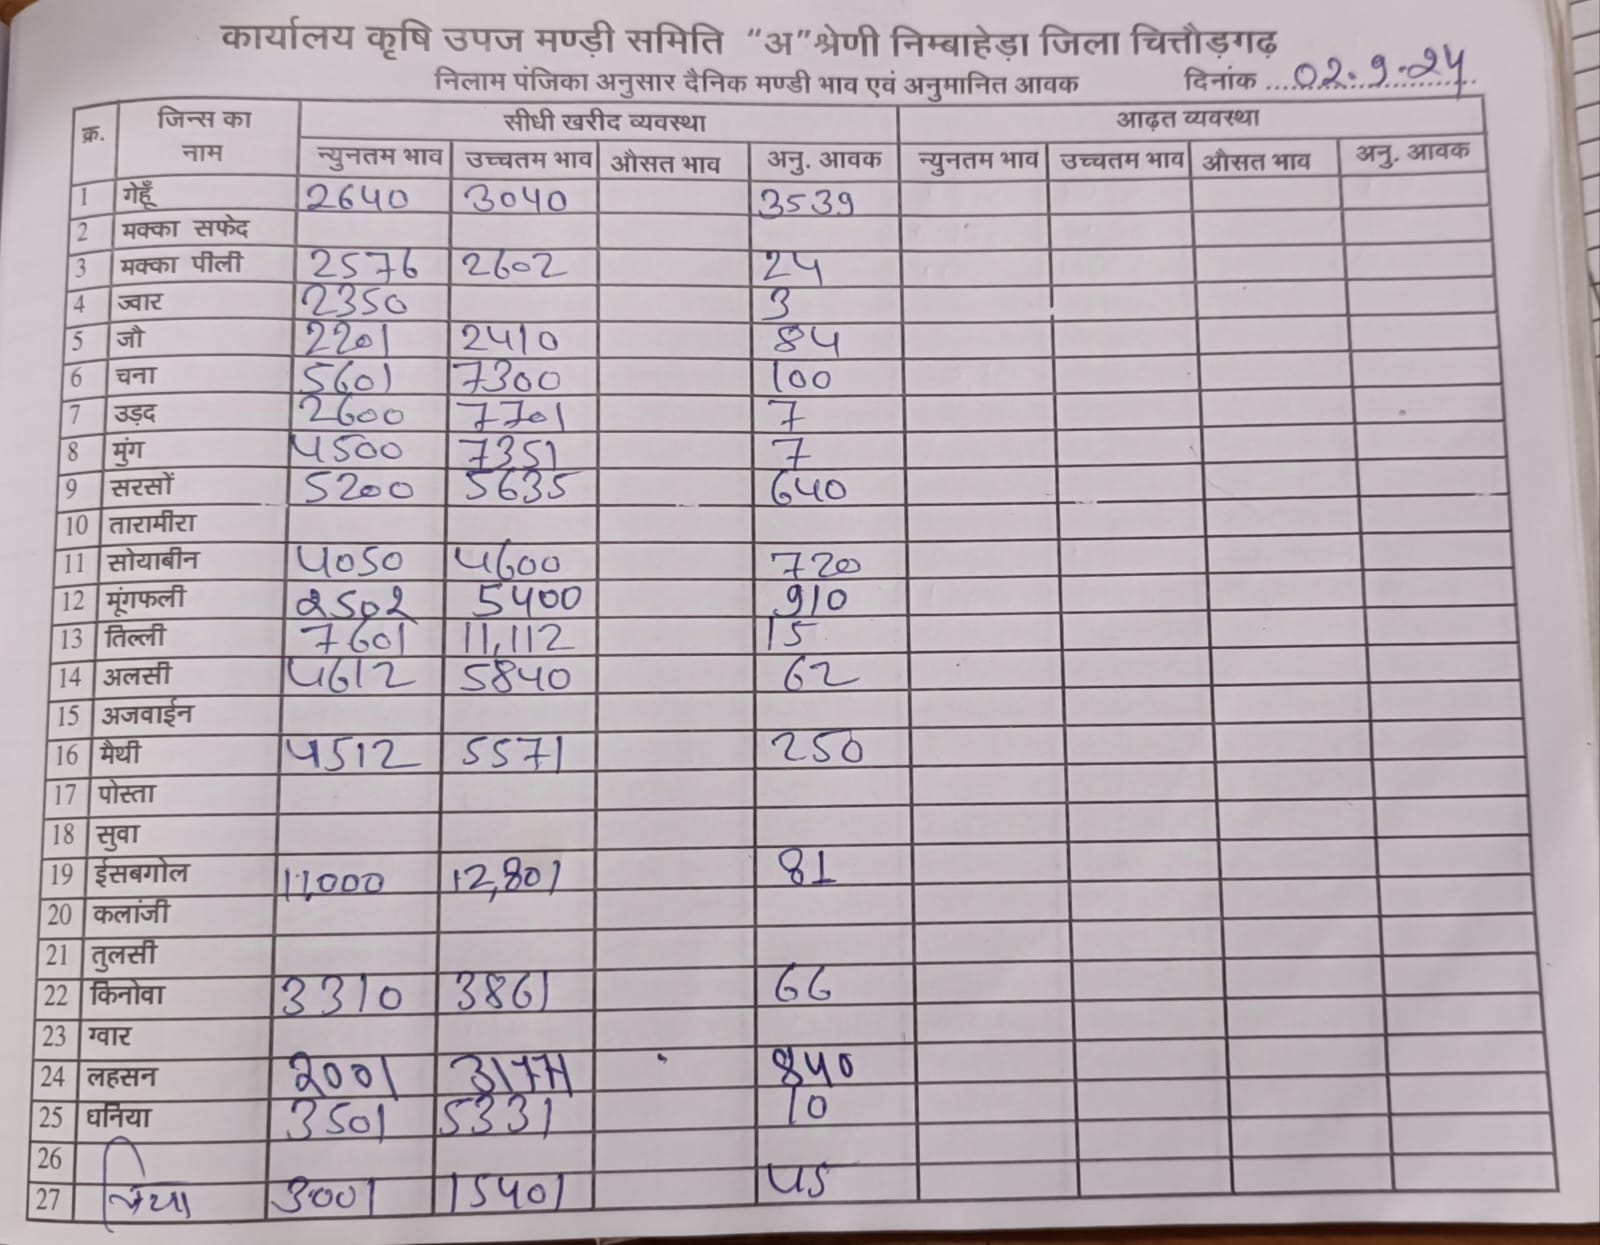 कार्यालय कृषि उपज मण्डी समिति "अ" श्रेणी निम्बाहेड़ा जिला चित्तौड़गढ़
निलाम पंजिका अनुसार दैनिक मण्डी भाव एवं अनुमानित आवक दिनांक ...02.9.24...
क्र. जिन्स का नाम सीधी खरीद व्यवस्था आढ़त व्यवस्था
न्युनतम भाव उच्चतम भाव औसत भाव अनु. आवक न्युनतम भाव उच्चतम भाव औसत भाव अनु. आवक
1 गेहूँ 2640 3040 3539
2 मक्का सफेद
3 मक्का पीली 2576 2602 24
4 ज्वार 2350 3
5 जौ 2201 2410 84
6 चना 5601 7300 100
7 उड़द 2600 7701 7
8 मुंग 4500 7351 7
9 सरसों 5200 5635 640
10 तारामीरा
11 सोयाबीन 4050 4600 720
12 मूंगफली 2502 5400 910
13 तिल्ली 7601 11,112 15
14 अलसी 4612 5840 62
15 अजवाईन
16 मैथी 4512 5571 250
17 पोस्ता
18 सुवा
19 ईसबगोल 11,000 12,801 81
20 कलांजी
21 तुलसी
22 किनोवा 3310 3861 66
23 ग्वार
24 लहसन 2001 840
25 धनिया 3501 5331 10
26
27 3001 15401 45